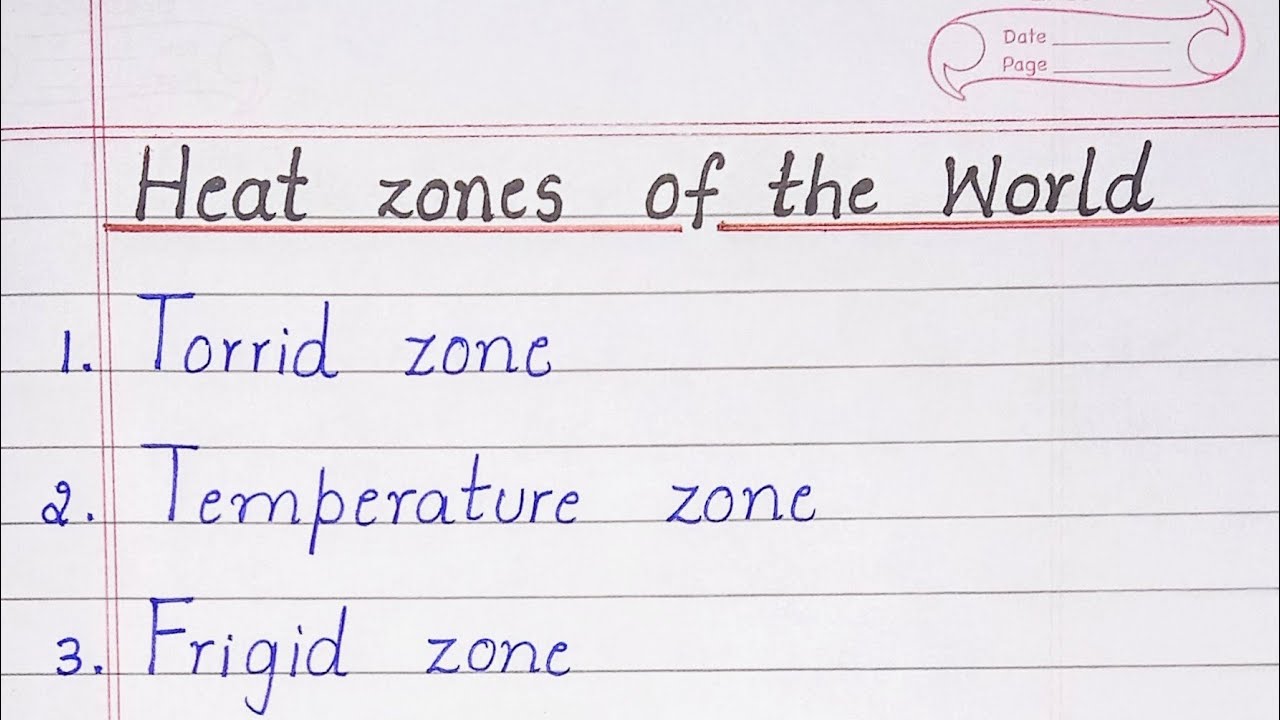 Date
Page
Heat zones of the World
1. Torrid zone
2. Temperature zone
3. Frigid zone